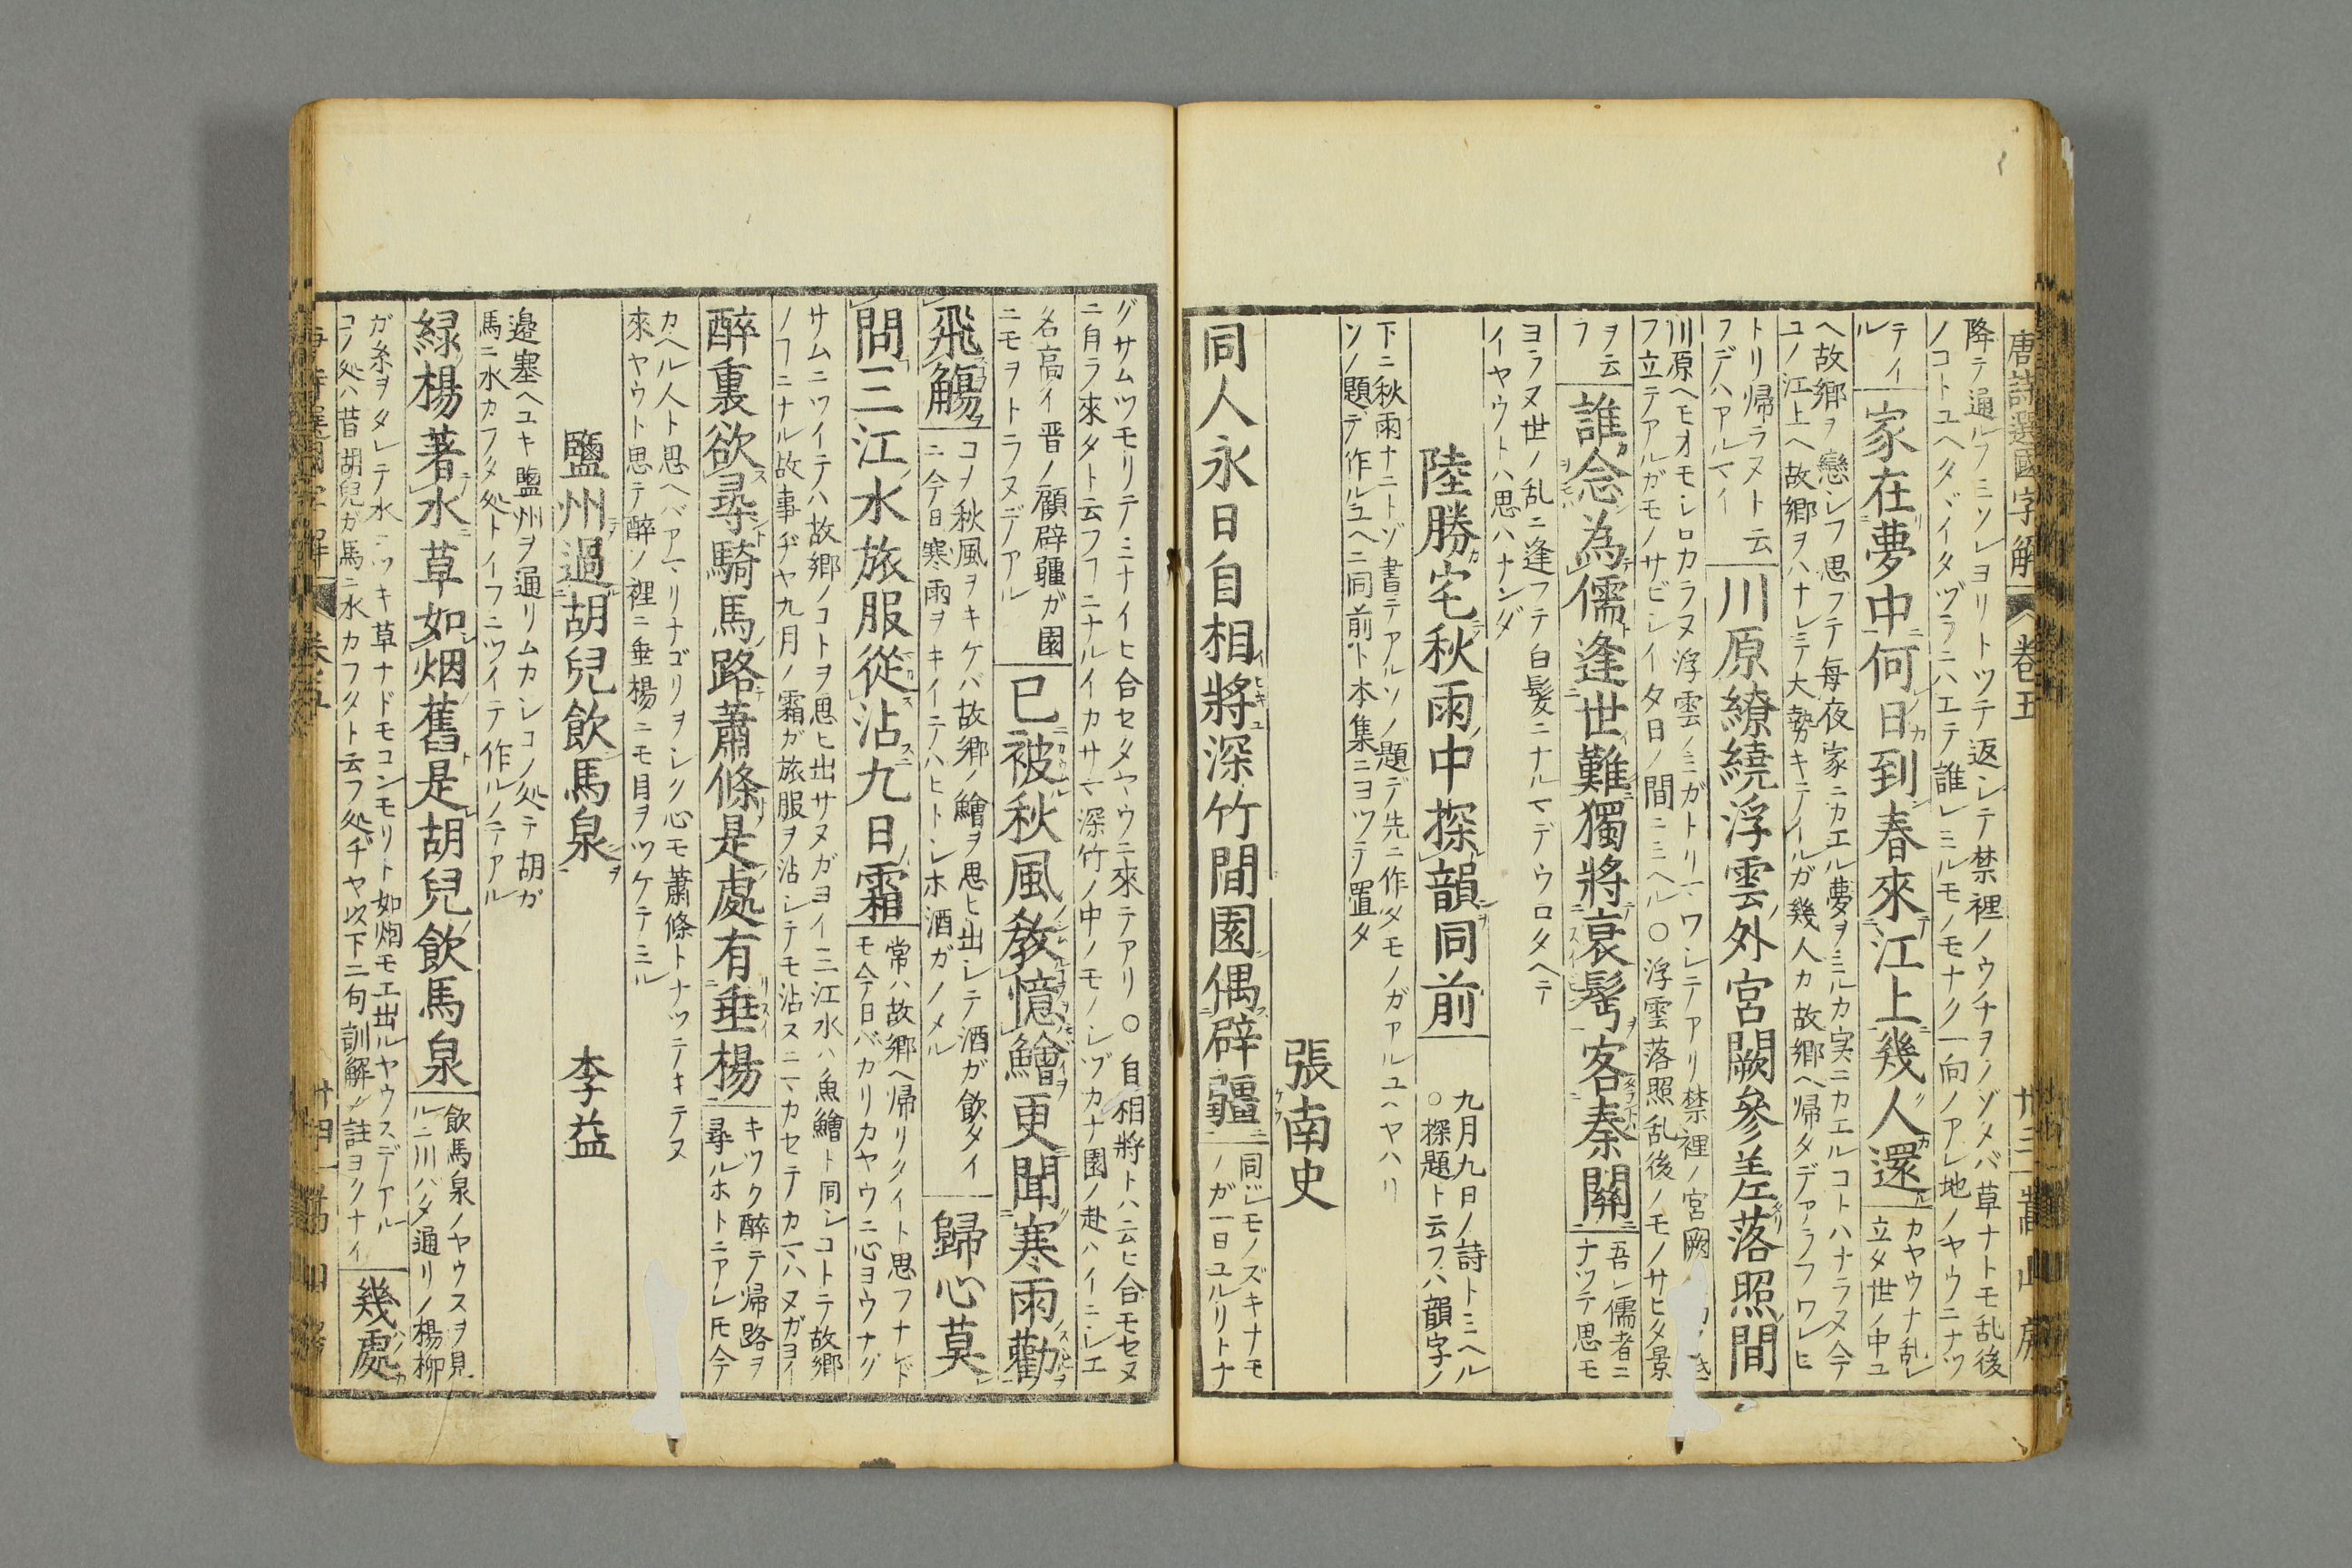 唐詩選國字解　巻五　廿三　嵩山房
降テ通ルフミソレヨリトツテ返シテ禁裡ノウチヲノゾメバ草ナトモ乱後
ノコトユヘタヾイタヅラニハエテ誰レミルモノモナク一向ノアレ地ノヤウニナツ
テイ
ル
家在夢中何日到春來江上幾人還
カヤウナ乱レ
立タ世ノ中ユ
ヘ故郷ヲ戀シフ思フテ毎夜家ニカエル夢ヲミルカ実ニカエルコトハナラヌ今
ユノ江上ヘ故郷ヲハナレテ大勢キテイルガ幾人カ故郷ヘ帰タデアラフワレヒ
トリ帰ラヌト云
フデハアルマイ
川原繚繞浮雲外宮闕參差落照間
川原ヘモオモシロカラヌ浮雲ノミガトリマワシテアリ禁裡ノ宮闕
フ立テアルガモノサビシイ夕日ノ間ニミヘル○浮雲落照乱後ノモノサヒタ景
ヲ云
フ
誰念為儒逢世難獨將衰鬂客秦關
吾レ儒者ニ
ナツテ思モ
ヨラヌ世ノ乱ニ逢フテ白髪ニナルマデウロタヘテ
イヤウトハ思ハナンダ
陸勝宅秋雨中探韻同前
九月九日ノ詩トミヘル
○探題ト云フハ韻字ノ
下ニ秋雨ナニトゾ書テアルソノ題デ先ニ作タモノガアルユヘヤハリ
ソノ題デ作ルユヘニ同前ト本集ニヨツテ置タ
張南史
同人永日自相將深竹間園偶辟疆
同ジモノズキナモ
ノガ一日ユルリトナ
グサムツモリテミナイヒ合セタヤウニ來テアリ○自相將トハ云ヒ合モセヌ
ニ自ラ來タト云フフニナルイカサマ深竹ノ中ノモノシヅカナ園ノ赴ハイニシエ
名高イ晋ノ顧辟疆ガ園
ニモヲトラヌデアル
已被秋風教憶鱠更聞寒雨勸
飛觴
コヲ秋風ヲキケバ故郷ノ鱠ヲ思ヒ出シテ酒ガ飲タイ
ニ今日寒雨ヲキイテハヒトシホ酒ガノメル
歸心莫
問三江水旅服從沾九日霜
常ハ故郷ヘ帰リタイト思フナレド
モ今日バカリカヤウニ心ヨウナグ
サムニツイテハ故郷ノコトヲ思ヒ出サヌガヨイ三江水ハ魚鱠ト同シコトテ故郷
ノフニナル故事ヂヤ九月ノ霜ガ旅服ヲ沾シテモ沾スニマカセテカマハヌガヨイ
醉裏欲尋騎馬路蕭條是處有垂楊
キツク醉テ帰路ヲ
尋ルホトニアレ𪜈今
カヘル人ト思ヘバアマリナゴリヲシク心モ蕭條トナツテキテヌ
來ヤウト思テ醉ノ裡ニ垂楊ニモ目ヲツケテミル
鹽州過胡兒飲馬泉　李益
邊塞ヘユキ鹽州ヲ通リムカシコノ処テ胡ガ
馬ニ水カフタ処トイフニツイテ作ルノテアル
緑楊著水草如烟舊是胡兒飲馬泉
飲馬泉ノヤウスヲ見
ルニ川バタ通リノ楊柳
ガ糸ヲタレテ水ニツキ草ナドモコンモリト如烟モエ出ルヤウスデアル
コノ処ハ昔胡兒ガ馬ニ水カフタト云フ処ヂヤ以下ニ句訓解ノ註ヲクナイ
幾處